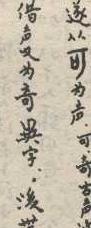 遂从可为声，可奇古声
借声又为奇異字。後世